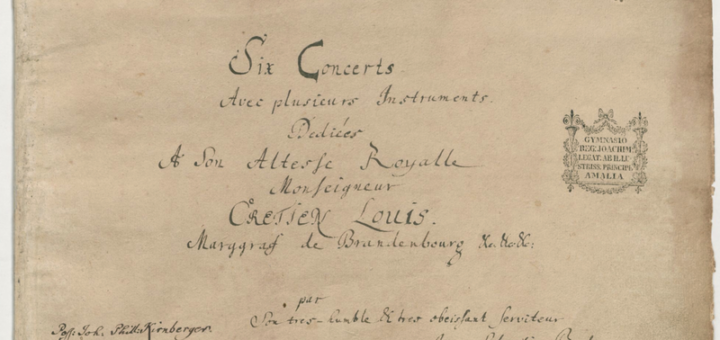 Six Concerts
Avec plusieurs Instruments.
Dediées
A Son Altesse Royalle
Monseigneur
CRETIEN LOUIS.
Marggraf de Brandenbourg &c. &c. &c:
GYMNASIO
REG. JOACHIM.
LEGAT. AB ILLU
STRISS. PRINCIPE
AMALIA
par
Son tres-humble & tres obeissant serviteur
Poss: Joh. Phill: Kirnberger.